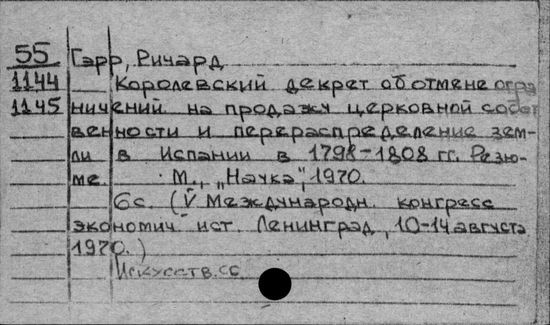 55 Гэрр, Ричард
1144 Королевский декрет об отмене огра
1145 ничений на продажу церковной собст
венности и перераспределение зем-
ли в Испании в 1798-1808 гг. Резю-
ме. М., „Наука", 1970.
6с. (V Международн. конгресс
экономич. ист. Ленинград, 10-14 августа
1970.)
Искусств. сс.